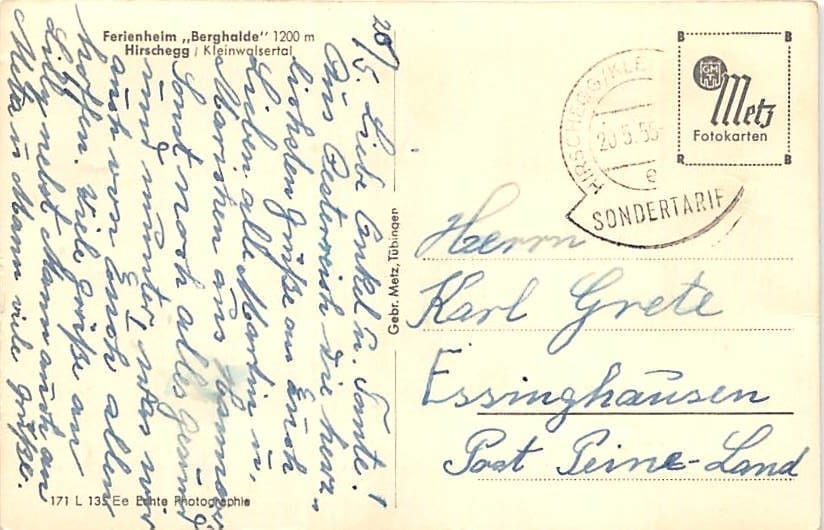 Ferienheim „Berghalde" 1200 m
Hirschegg / Kleinwalsertal
20/5. Liebe Onkel u. Tante!
Aus Oesterreich die herz-
lichsten Grüße an Euch
Lieben alle Martin u.
Mariechen aus Hannover
Sonst noch alles gesund
und munter was wir
auch von Euch allen
hoffen. Viele Grüße an
Lilly nebst Mann auch an
Meta u Mann viele Grüße.
171 L 135 Ee Echte Photographie
Gebr. Metz, Tübingen
HIRSCHEGG/KLE
20.5.55
e
SONDERTARIF
B B
GM
Metz
Fotokarten
R B
Herrn
Karl Grete
Essinghausen
Post Peine-Land